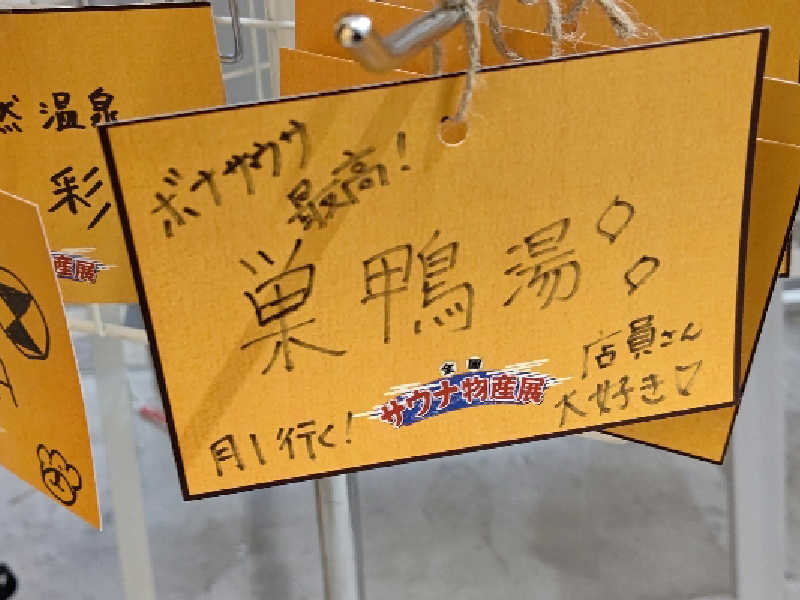 然温泉
彩
産展
ボナサウナ
最高!
巣鴨湯
店員さん
大好き♡
全国
サウナ物産展
月1行く!